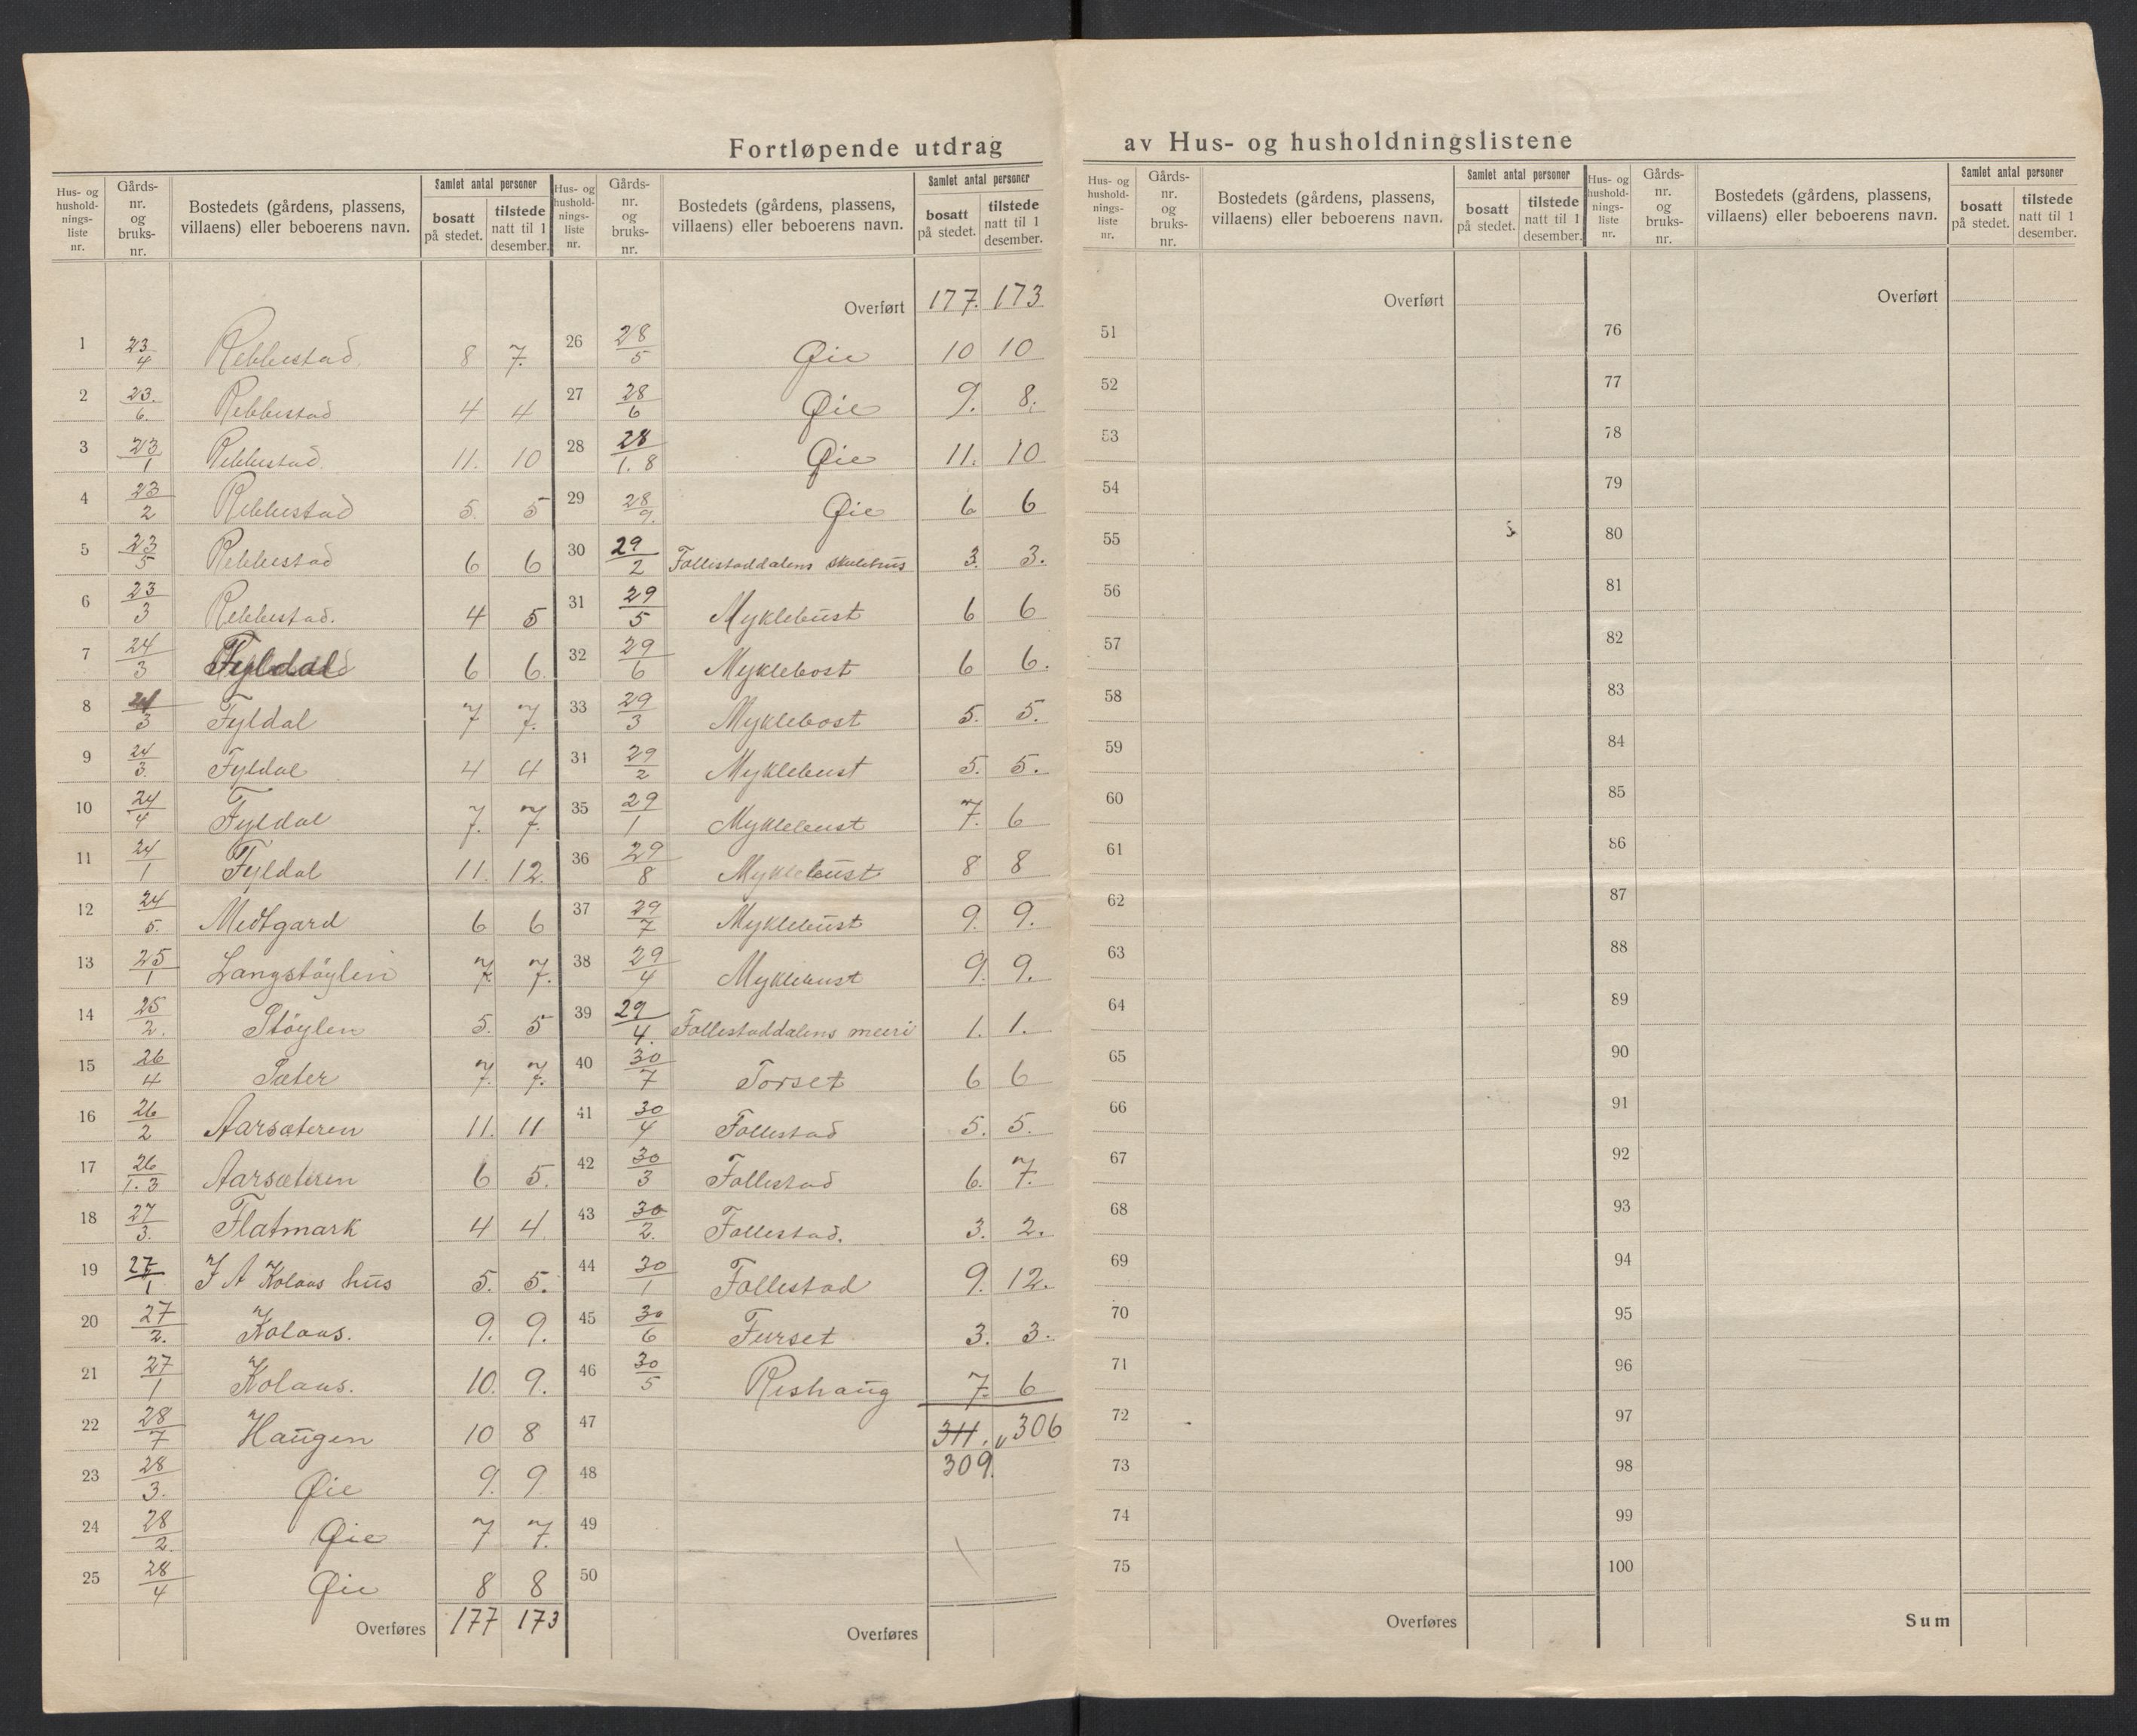 Fortløpende utdrag av Hus- og husholdningslistene
Hus- og hushold-nings-liste nr. Gårds-nr. og bruks-nr. Bostedets (gårdens, plassens, villaens) eller beboerens navn. Samlet antal personer bosatt på stedet. tilstede natt til 1 desember.
1 23/4 Rebbestad 8 7.
2 23./6. Rebbestad 4 4
3 23/1 Rebbestad. 11. 10
4 23/2 Rebbestad 5. 5
5 23/5 Rebbestad 6 6
6 23/3 Rebbestad. 4 5
7 24/3 Fyldal 6 6.
8 24/3 Fyldal 7 7.
9 24/3. Fyldal 4 4
10 24/4 Fyldal 7. 7.
11 24/1 Fyldal 11. 12.
12 24/5. Medtgard 6 6
13 25/1 Langstøylen 7. 7.
14 25/2. Støylen 5. 5
15 26/4 Sæter 7. 7.
16 26/2 Aarsæteren 11. 11
17 26/1. 3 Aarsæteren 6 5.
18 27/3. Flatmark 4 4.
19 27/1 J A Kolaas hus 5. 5.
20 27/2. Kolaas. 9. 9.
21 27/1 Kolaas. 10. 9.
22 28/7 Haugen 10 8
23 28/3. Øie 9. 9.
24 28/2. Øie 7 7.
25 28/4 Øie 8 8
Overføres 177 173
Hus- og hushold-nings-liste nr. Gårds-nr. og bruks-nr. Bostedets (gårdens, plassens, villaens) eller beboerens navn. Samlet antal personer bosatt på stedet. tilstede natt til 1 desember.
Overført 177. 173
26 28/5 Øie 10 10
27 28/6 Øie 9. 8.
28 28/1. 8 Øie 11. 10
29 28/9. Øie 6 6
30 29/2 Follestaddalens skulehus 3. 3.
31 29/5 Myklebust 6 6
32 29/6 Myklebost 6 6.
33 29/3 Myklebost 5. 5.
34 29/2 Myklebust 5. 5.
35 29/1 Myklebust 7. 6
36 29/8 Myklebust 8 8
37 29/7 Myklebust 9. 9.
38 29/4 Myklebust 9. 9.
39 29/4. Follestaddalens meieri 1. 1.
40 30/7 Torset 6 6
41 30/4 Follestad 5. 5.
42 30/3 Follestad 6. 7.
43 30/2. Follestad. 3. 2.
44 30/1 Follestad 9. 12.
45 30/6 Furset 3. 3.
46 30/5 Rishaug 7. 6
47 311. 306
48 309.
49
50
Overføres
Hus- og hushold-nings-liste nr. Gårds-nr. og bruks-nr. Bostedets (gårdens, plassens, villaens) eller beboerens navn. Samlet antal personer bosatt på stedet. tilstede natt til 1 desember.
Overført
51
52
53
54
55
56
57
58
59
60
61
62
63
64
65
66
67
68
69
70
71
72
73
74
75
Overføres
Hus- og hushold-nings-liste nr. Gårds-nr. og bruks-nr. Bostedets (gårdens, plassens, villaens) eller beboerens navn. Samlet antal personer bosatt på stedet. tilstede natt til 1 desember.
Overført
76
77
78
79
80
81
82
83
84
85
86
87
88
89
90
91
92
93
94
95
96
97
98
99
100
Sum